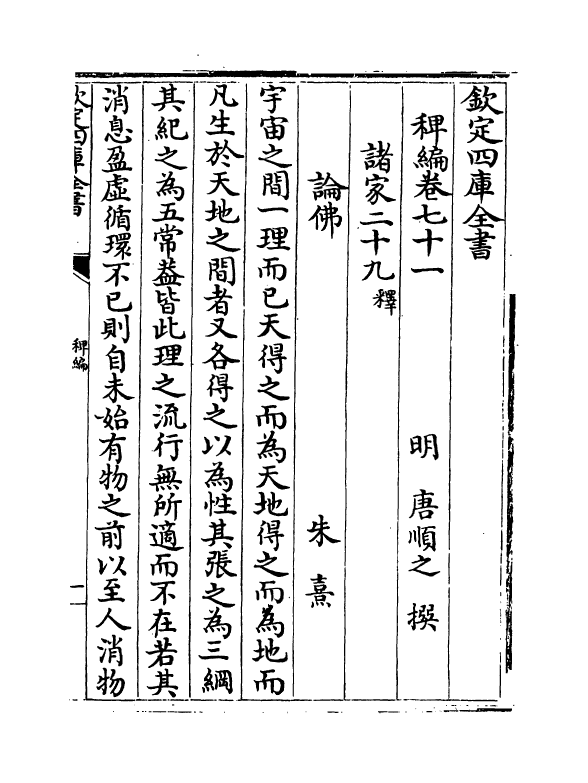 欽定四庫全書
稗編卷七十一 明 唐順之 撰
諸家二十九 釋
論佛 朱熹
宇宙之間一理而已天得之而為天地得之而為地而
凡生於天地之間者又各得之以為性其張之為三綱
其紀之為五常葢皆此理之流行無所適而不在若其
消息盈虛循環不已則自未始有物之前以至人消物
欽定四庫全書
稗編
一